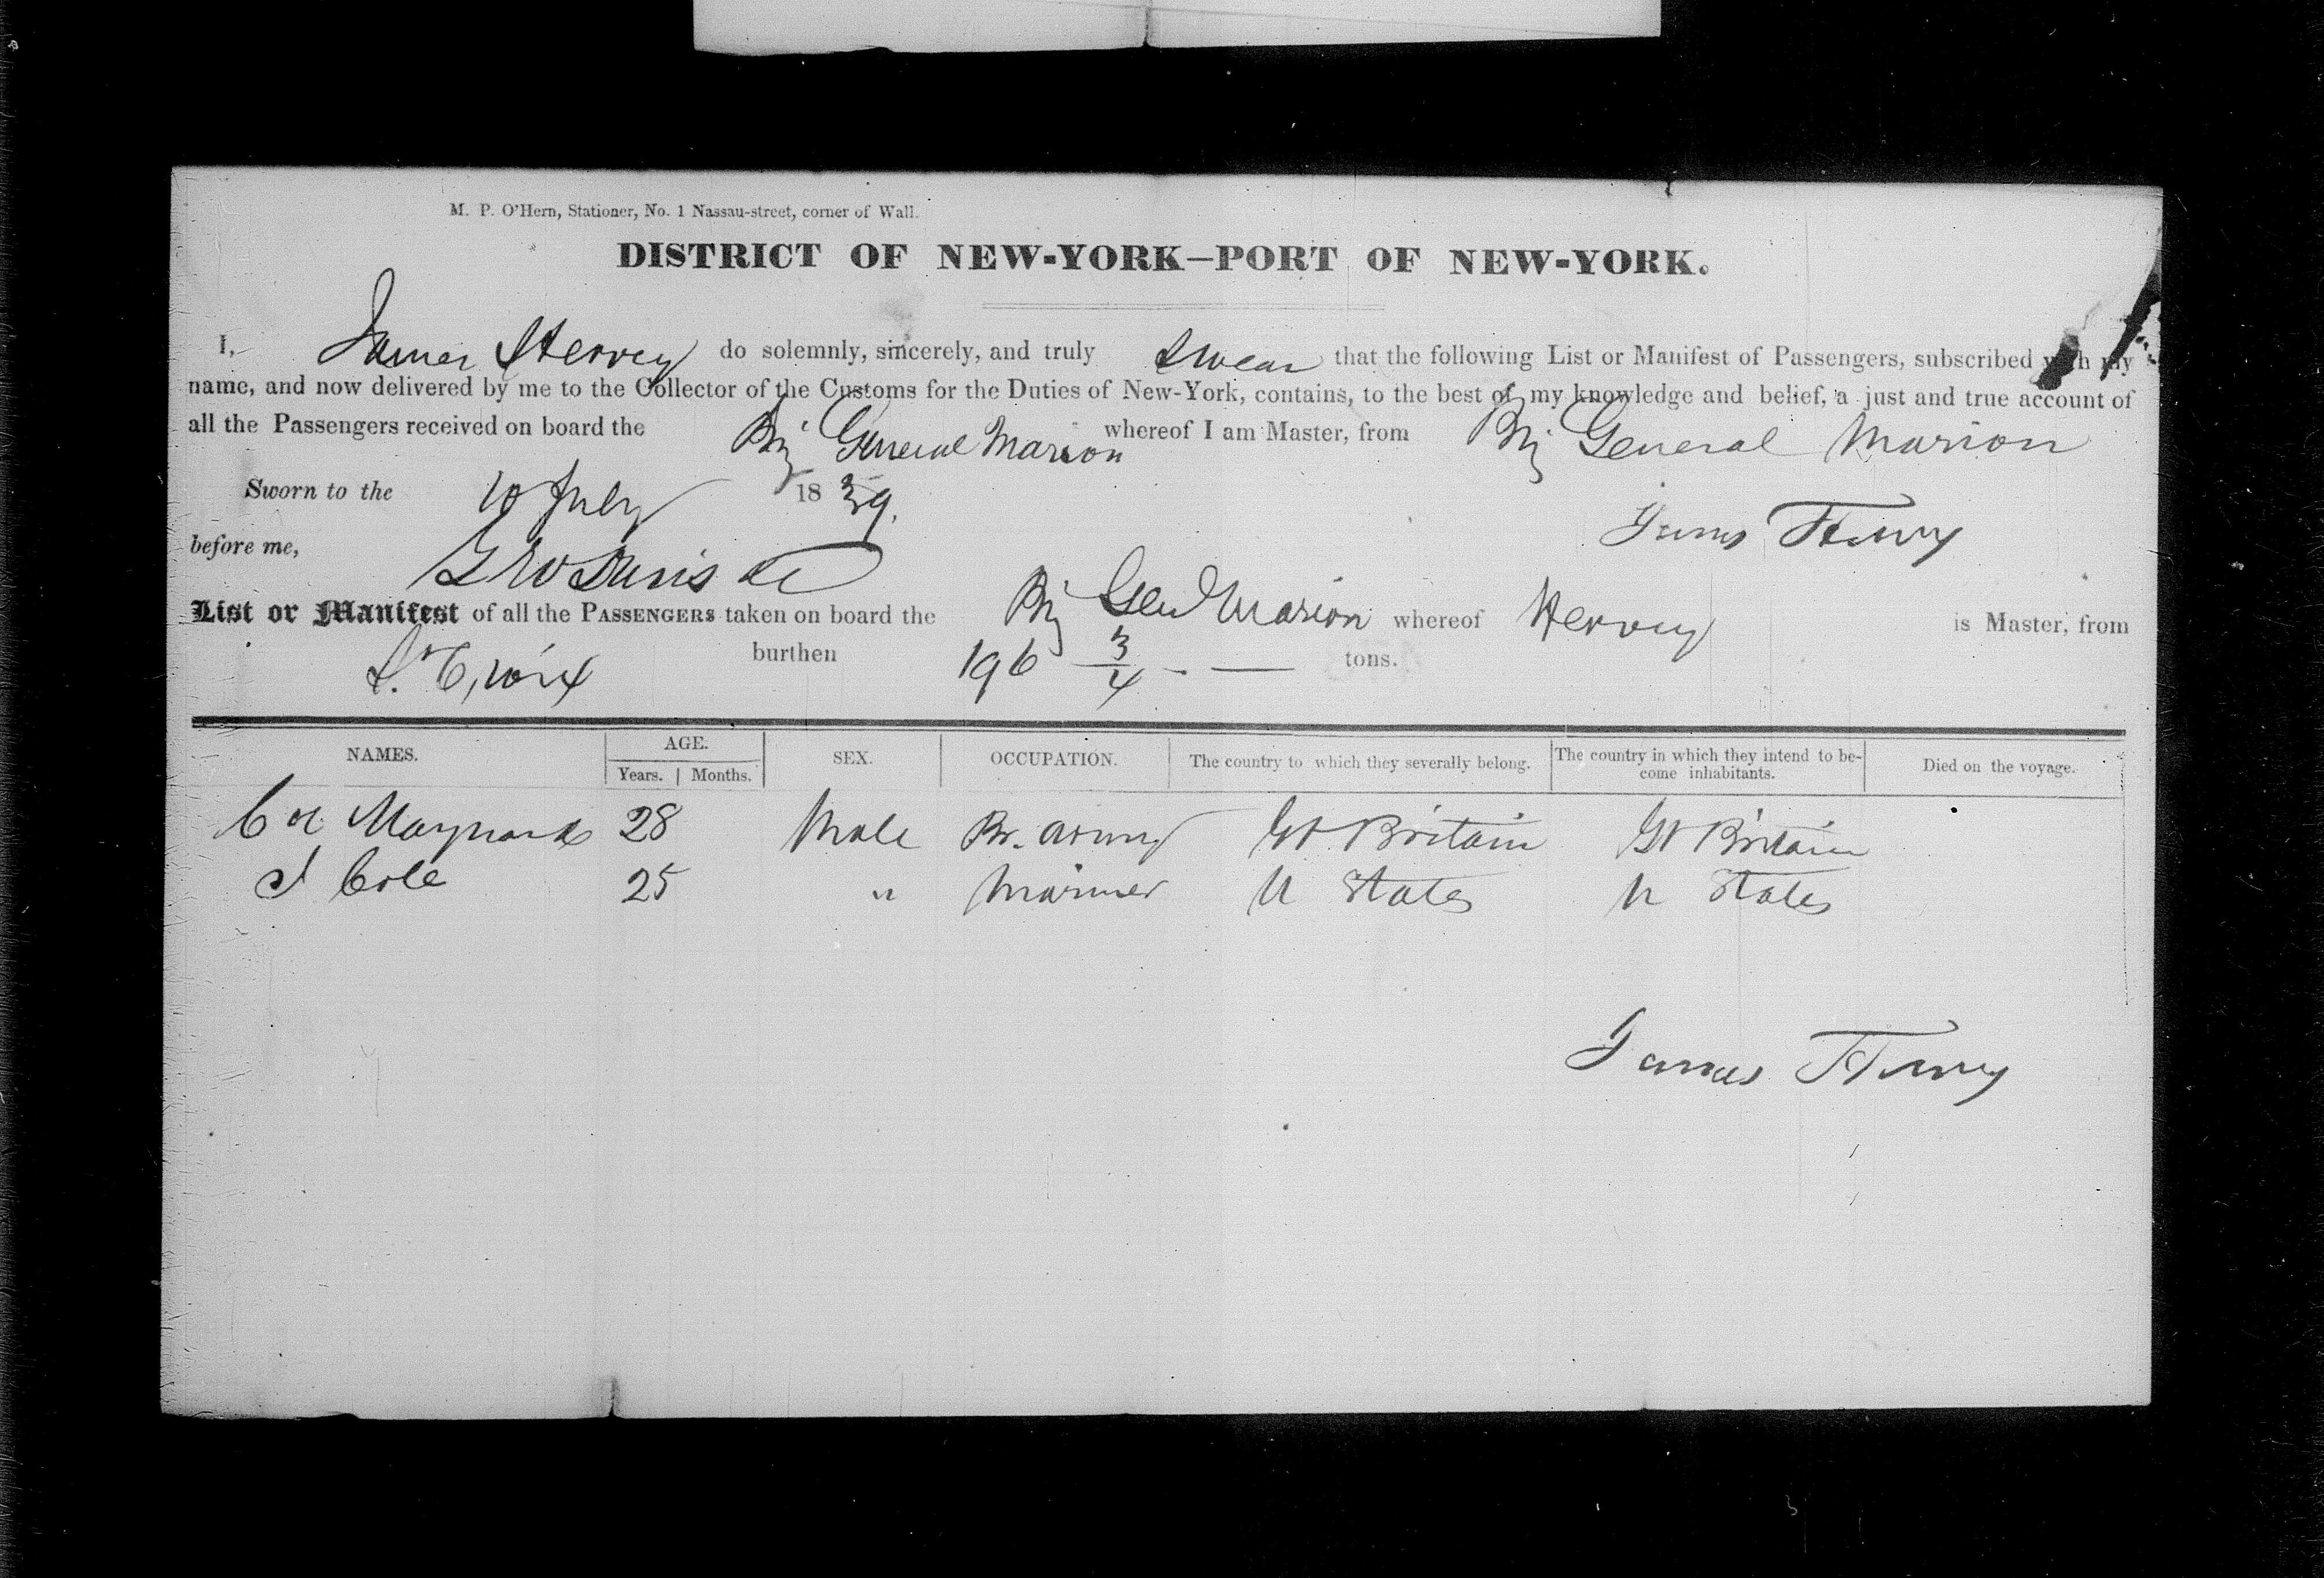 M. P. O'Hern, Stationer, No. 1 Nassau-street, corner of Wall.
DISTRICT OF NEW-YORK—PORT OF NEW-YORK.
I, James Hervey do solemnly, sincerely, and truly swear that the following List or Manifest of Passengers, subscribed with my
name, and now delivered by me to the Collector of the Customs for the Duties of New-York, contains, to the best of my knowledge and belief, a just and true account of
all the Passengers received on board the Brig General Marion whereof I am Master, from Brig General Marion
Sworn to the 10 July 1839.
James Hervey
before me,
List or Manifest of all the PASSENGERS taken on board the Brig Genl Marion whereof Hervey is Master, from
St. Croix burthen 196 3/4 - — tons.
NAMES. AGE. Years. Months. SEX. OCCUPATION. The country to which they severally belong. The country in which they intend to become inhabitants. Died on the voyage.
Maynard 28 Male Br. army Gt Britain Gt Britain
J Cole 25 " Mariner U States U States
James Hervey